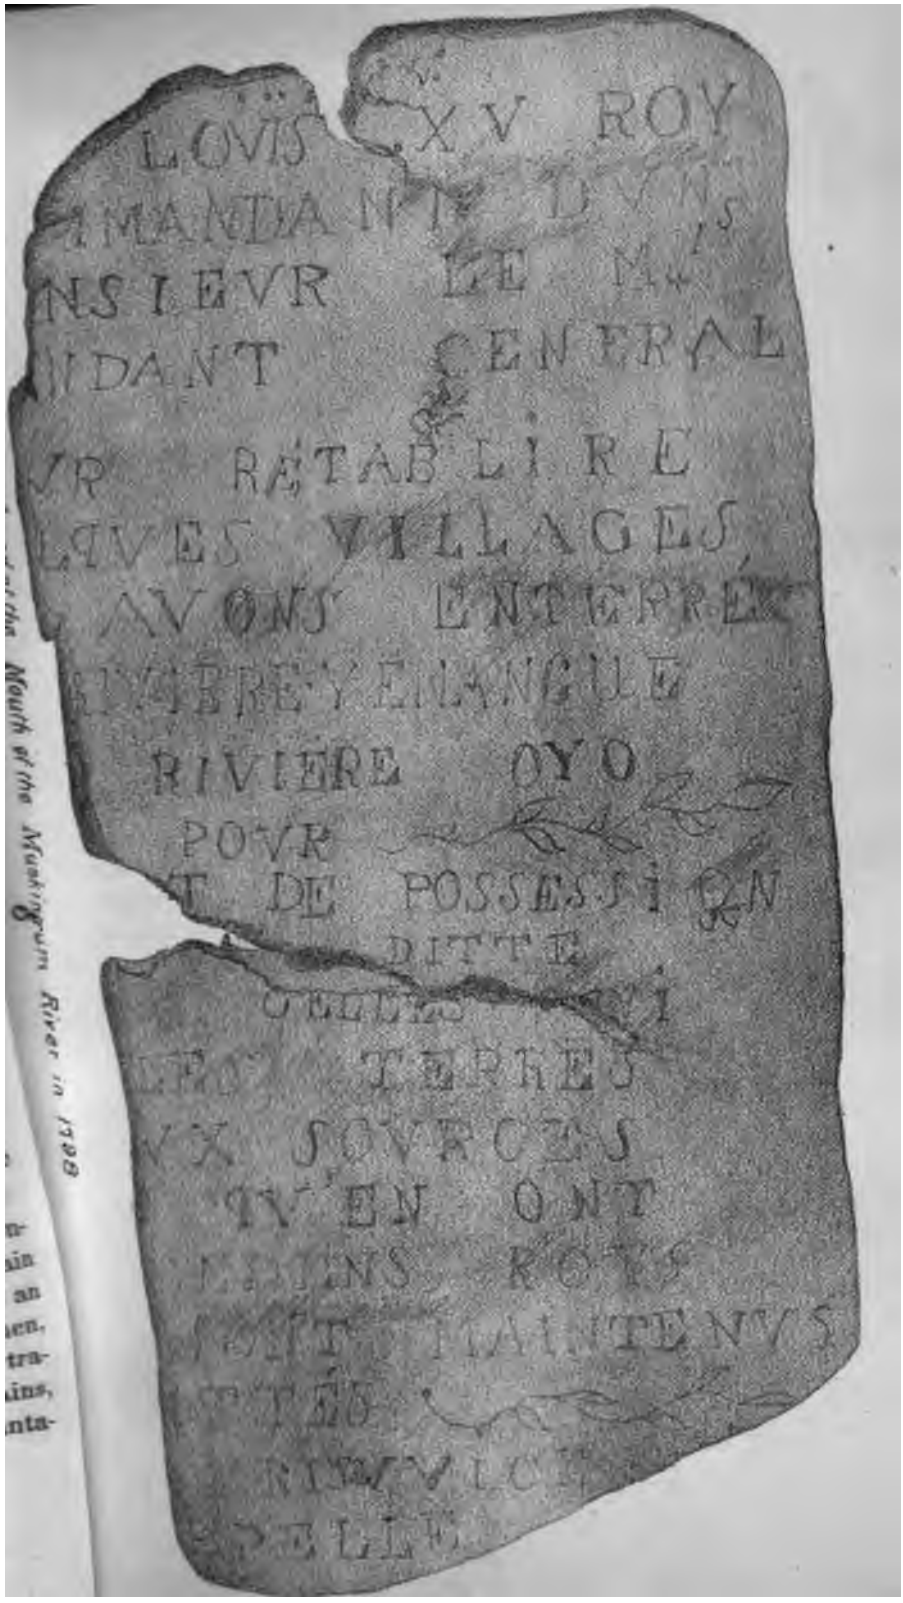 LOVIS XV ROY
MMANDANT DVNS
NSIEVR LE Mis
NDANT GENERAL
VR RÉTABLIRE
LQVES VILLAGES,
AVONS ENTERRÉ
RIVIERE YENANGUE
RIVIERE OYO
POVR
T DE POSSESSION
DITTE
CELLES QVi
LES TERRES
VX SOVRCES
QV'EN ONT
ROYS
VONT MAINTENVS
ITTÉS
RISVVICK
PELLE
the Mouth of the Muskingum River in 1798
n-
ain
an
en,
tra-
ins,
nta-